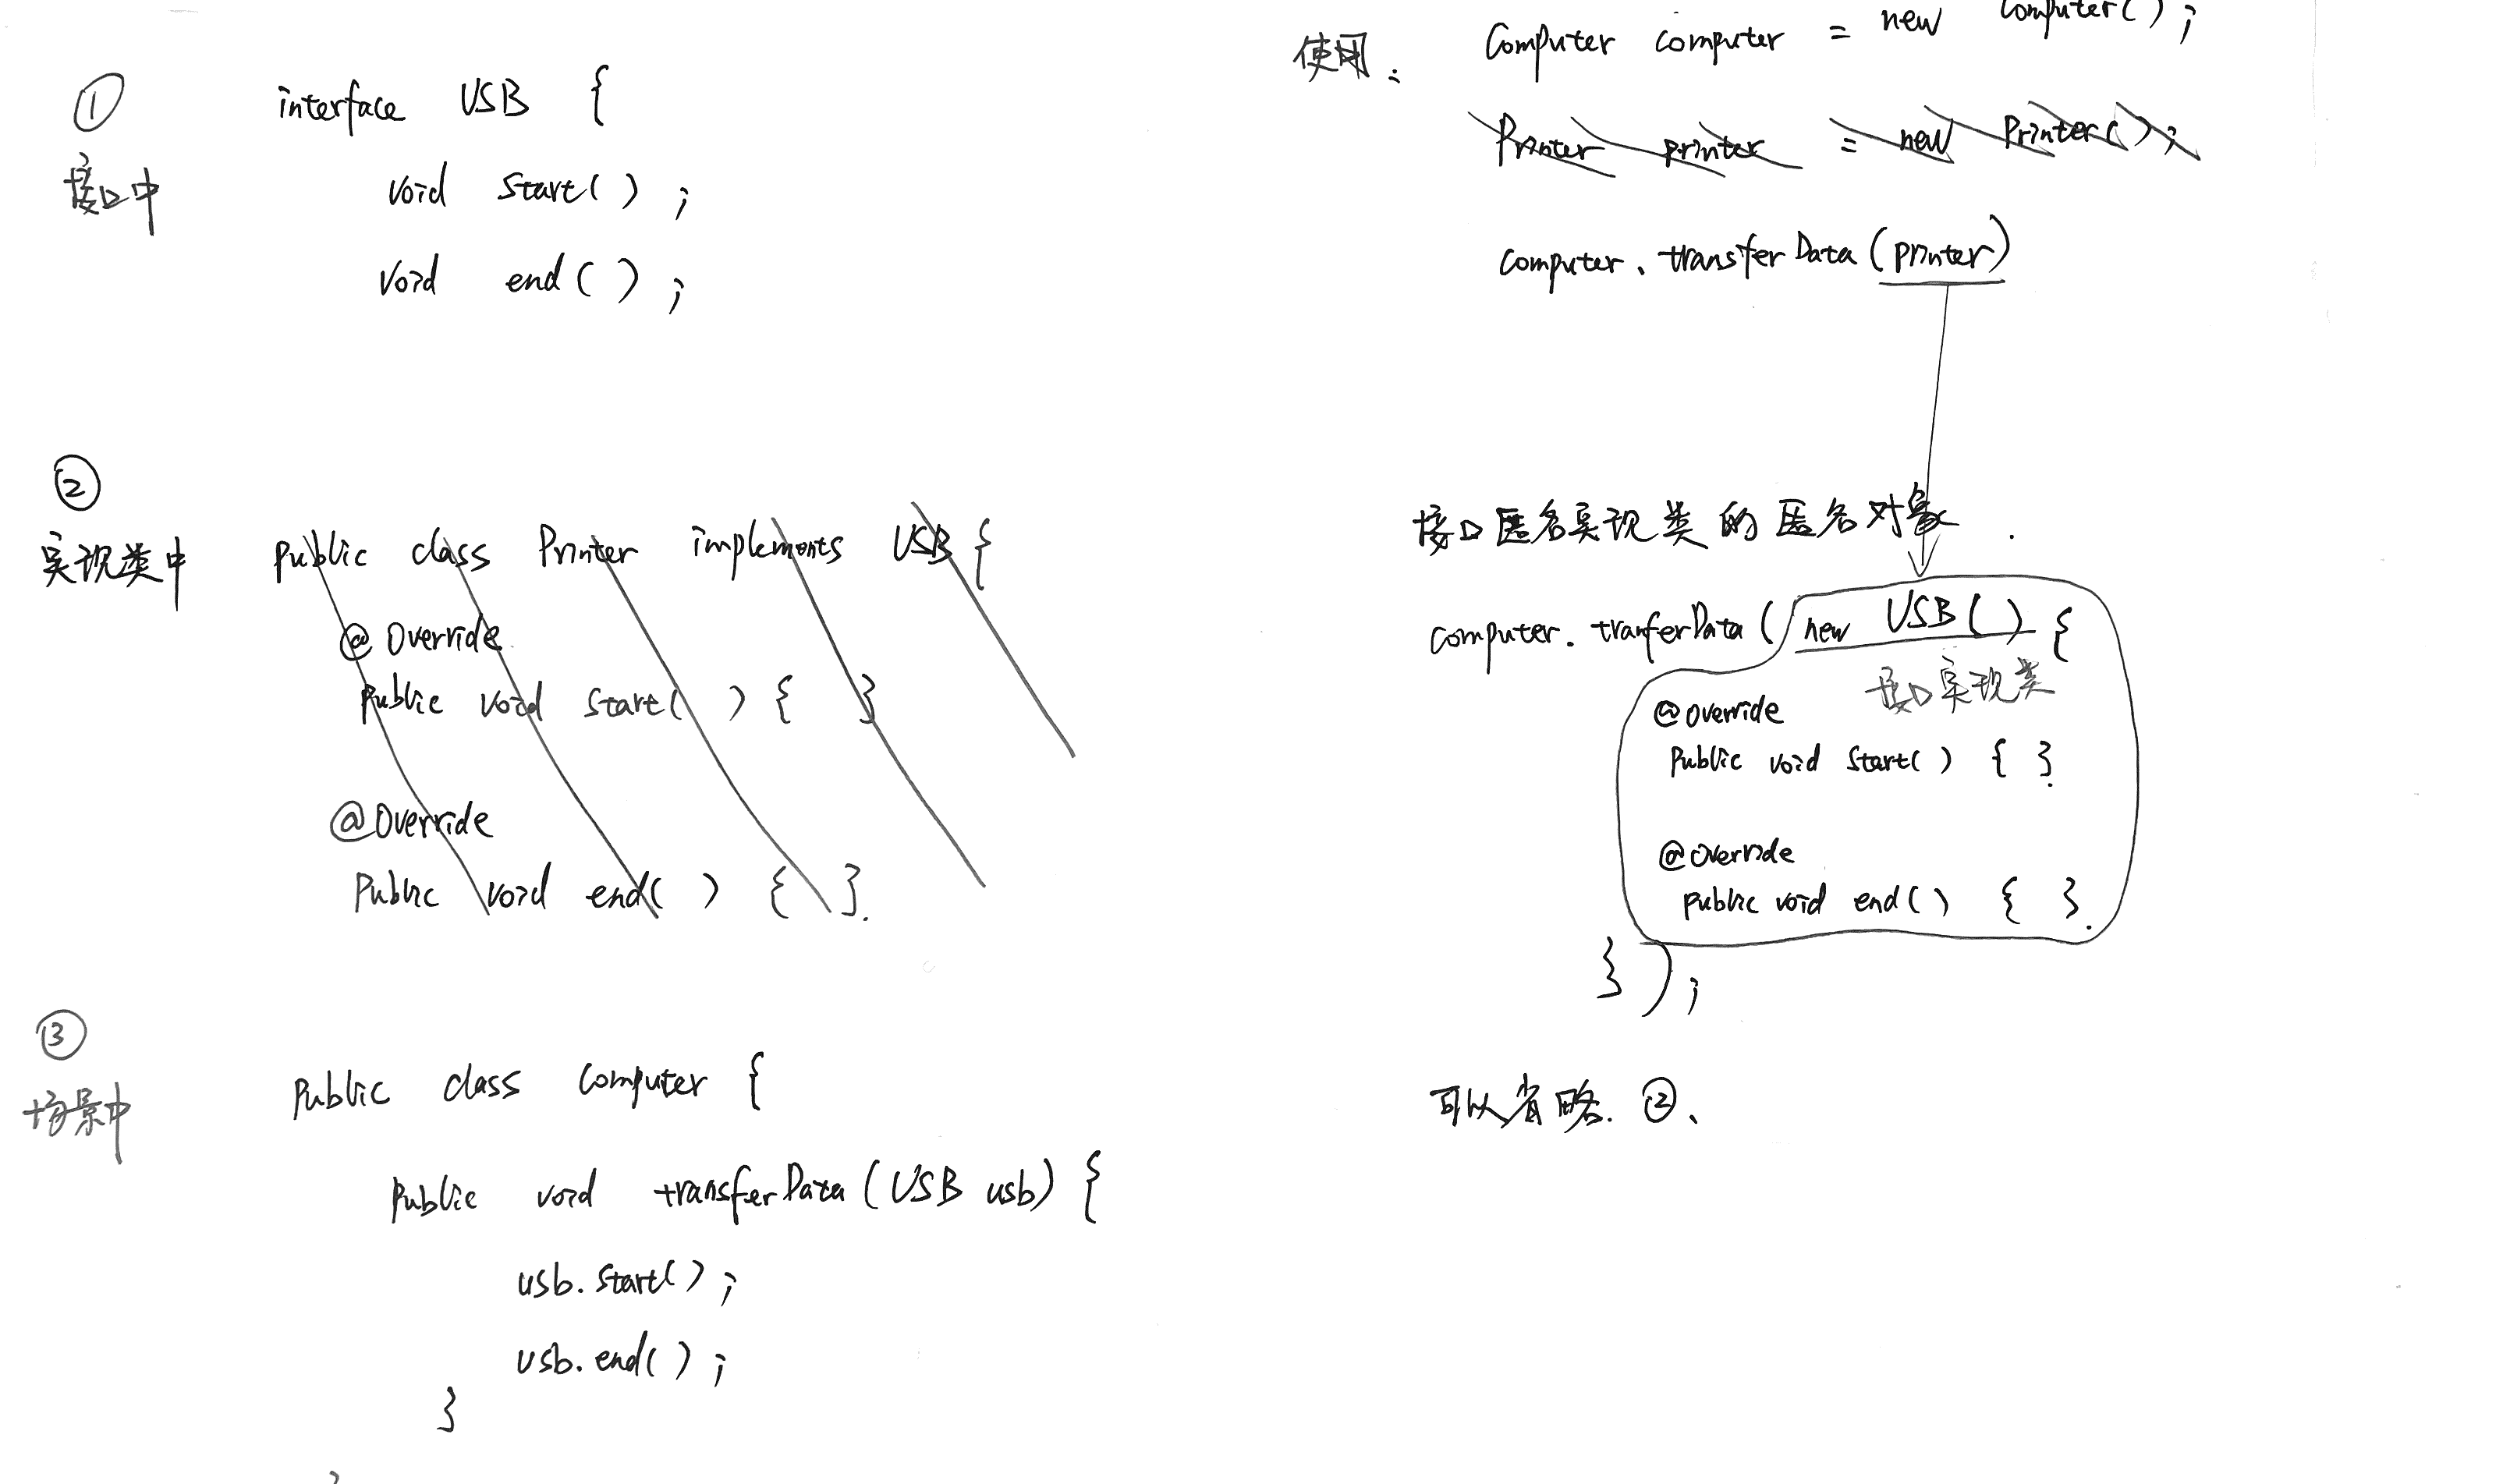 ①
接口中
interface USB {
void start( ) ;
void end( ) ;
②
实现类中
public class Printer implements USB {
@Override
public void start( ) { }
@Override
public void end( ) { }
③
场景中
public class Computer {
public void transferData(USB usb) {
usb.start( ) ;
usb.end( ) ;
}
使用:
Computer computer = new Computer( ) ;
Printer printer = new Printer( ) ;
computer.transferData(printer)
接口匿名实现类的匿名对象.
computer.tranferData( new USB( ) {
接口实现类
@override
public void start( ) { }
@override
public void end( ) { }
} ) ;
可以省略. ②、